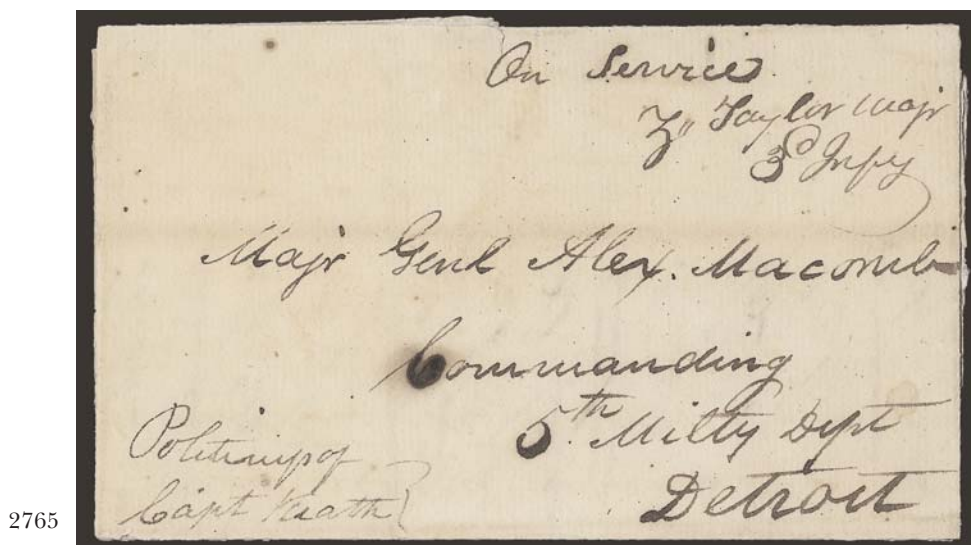 On Service
Z" Taylor Majr
3d Infy
Majr Genl Alex. Macomb
Commanding
5th Milty Dept
Detroit
Politeness of
Capt Keath
2765